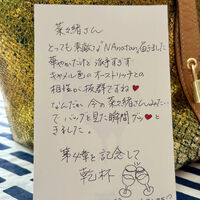 菜々緒さん
とっても素敵な"NAnatan"届きました
華やかだけど派手すぎず
キャメル色のオーストリッチとの
相性が抜群ですね♥
なんだか今の菜々緒さんみたい
でバッグを見た瞬間グッ♥と
きました。
第4章を記念して
乾杯